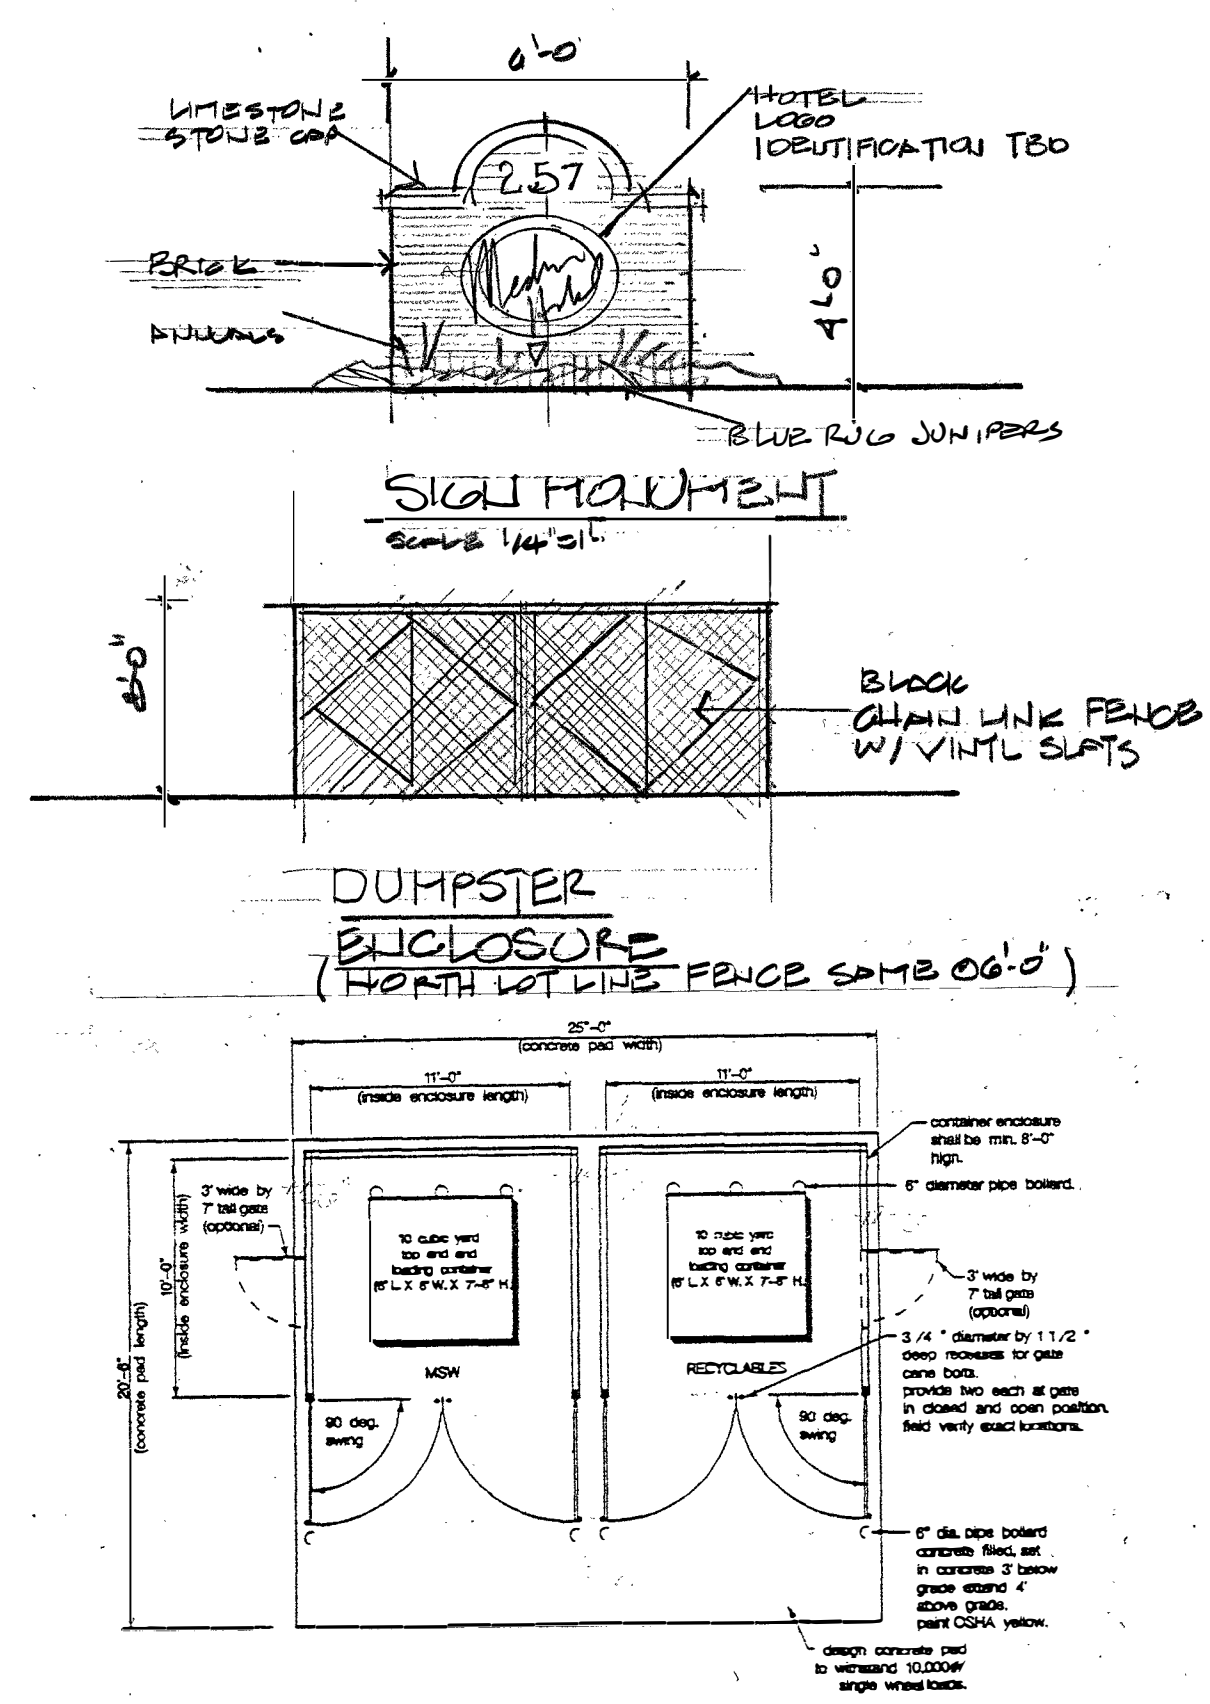 6'-0"
LIMESTONE
STONE CAP
HOTEL
LOGO
IDENTIFICATION TBD
257
BRICK
Medina
Hotel
ANNUALS
4'-0"
BLUE RUG JUNIPERS
SIGN MONUMENT
SCALE 1/4"=1'
8'-0"
BLACK
CHAIN LINK FENCE
W/ VINYL SLATS
DUMPSTER
ENCLOSURE
(NORTH LOT LINE FENCE SAME @6'-0")
25'-0"
(concrete pad width)
11'-0"
(inside enclosure length)
11'-0"
(inside enclosure length)
container enclosure
shall be min. 8'-0"
high.
6" diameter pipe bollard.
3' wide by
7' tall gate
(optional)
10'-0"
(inside enclosure width)
20'-6"
(concrete pad length)
10 cubic yard
top end end
loading container
(6' L X 6' W. X 7'-6" H.
10 cubic yard
top end end
loading container
(6' L X 6' W. X 7'-6" H.
3' wide by
7' tall gate
(optional)
MSW
RECYCLABLES
3/4 " diameter by 1 1/2 "
deep recesses for gate
cane bolts.
provide two each at gate
in closed and open position.
field verify exact locations.
90 deg.
swing
90 deg.
swing
6" dia. pipe bollard
concrete filled, set
in concrete 3' below
grade extend 4'
above grade.
paint OSHA yellow.
design concrete pad
to withstand 10,000#
single wheel loads.